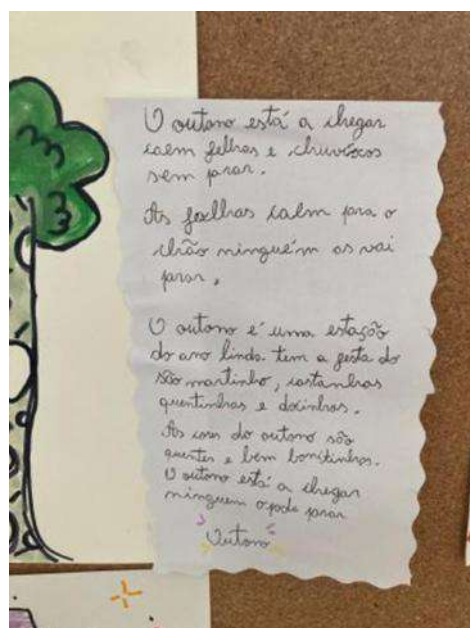 O outono está a chegar
caem felhas e chuviscos
sem parar.
As foelhas caem para o
chão ninguém as vai
parar,
O outono é uma estação
do ano linda. tem a festa do
São martinho, castanhas
quentinhas e docinhas.
As cores do outono são
quentes e bem bonitinhas.
O outono está a chegar
ninguem o pode parar
Outono